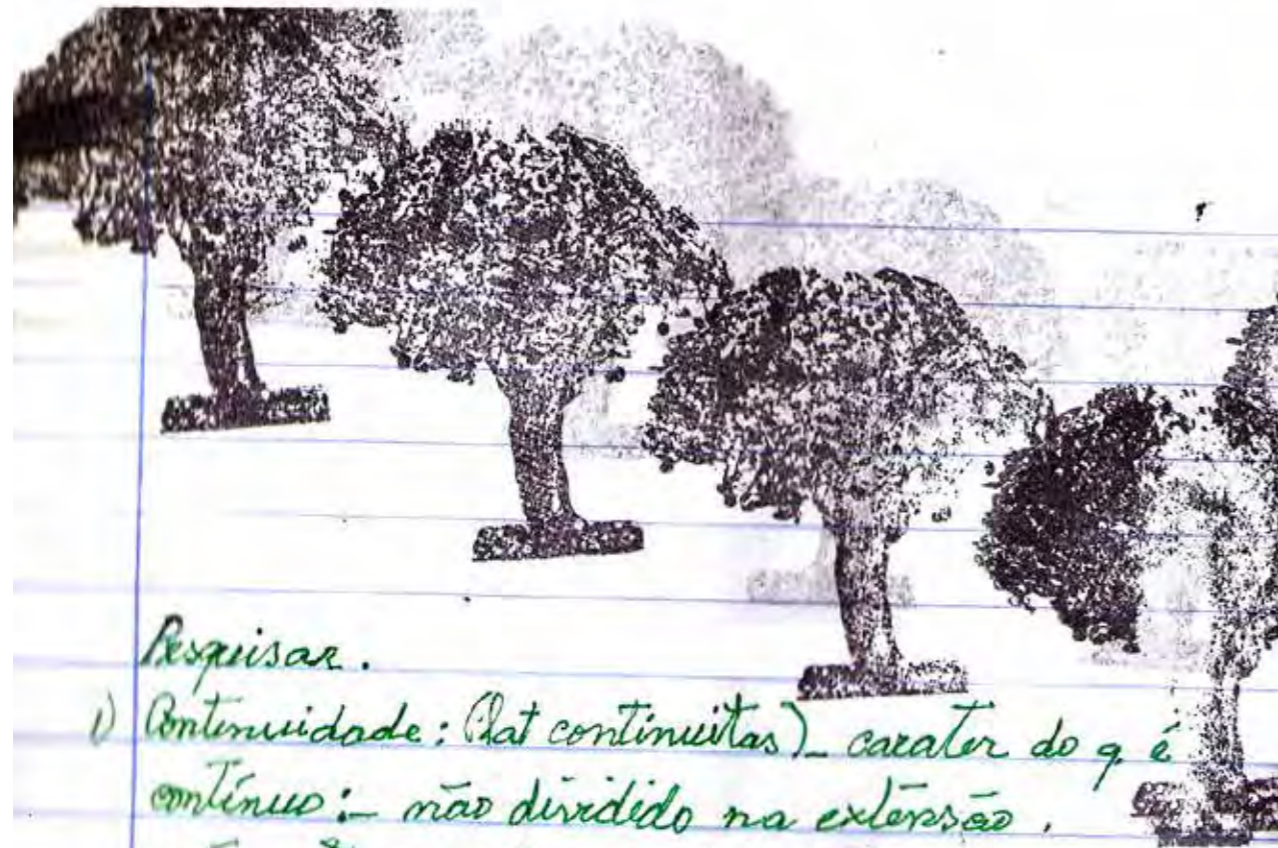 Pesquisar.
1) Continuidade: (lat continuitas) - carater do q. é
contínuo: - não dividido na extensão.